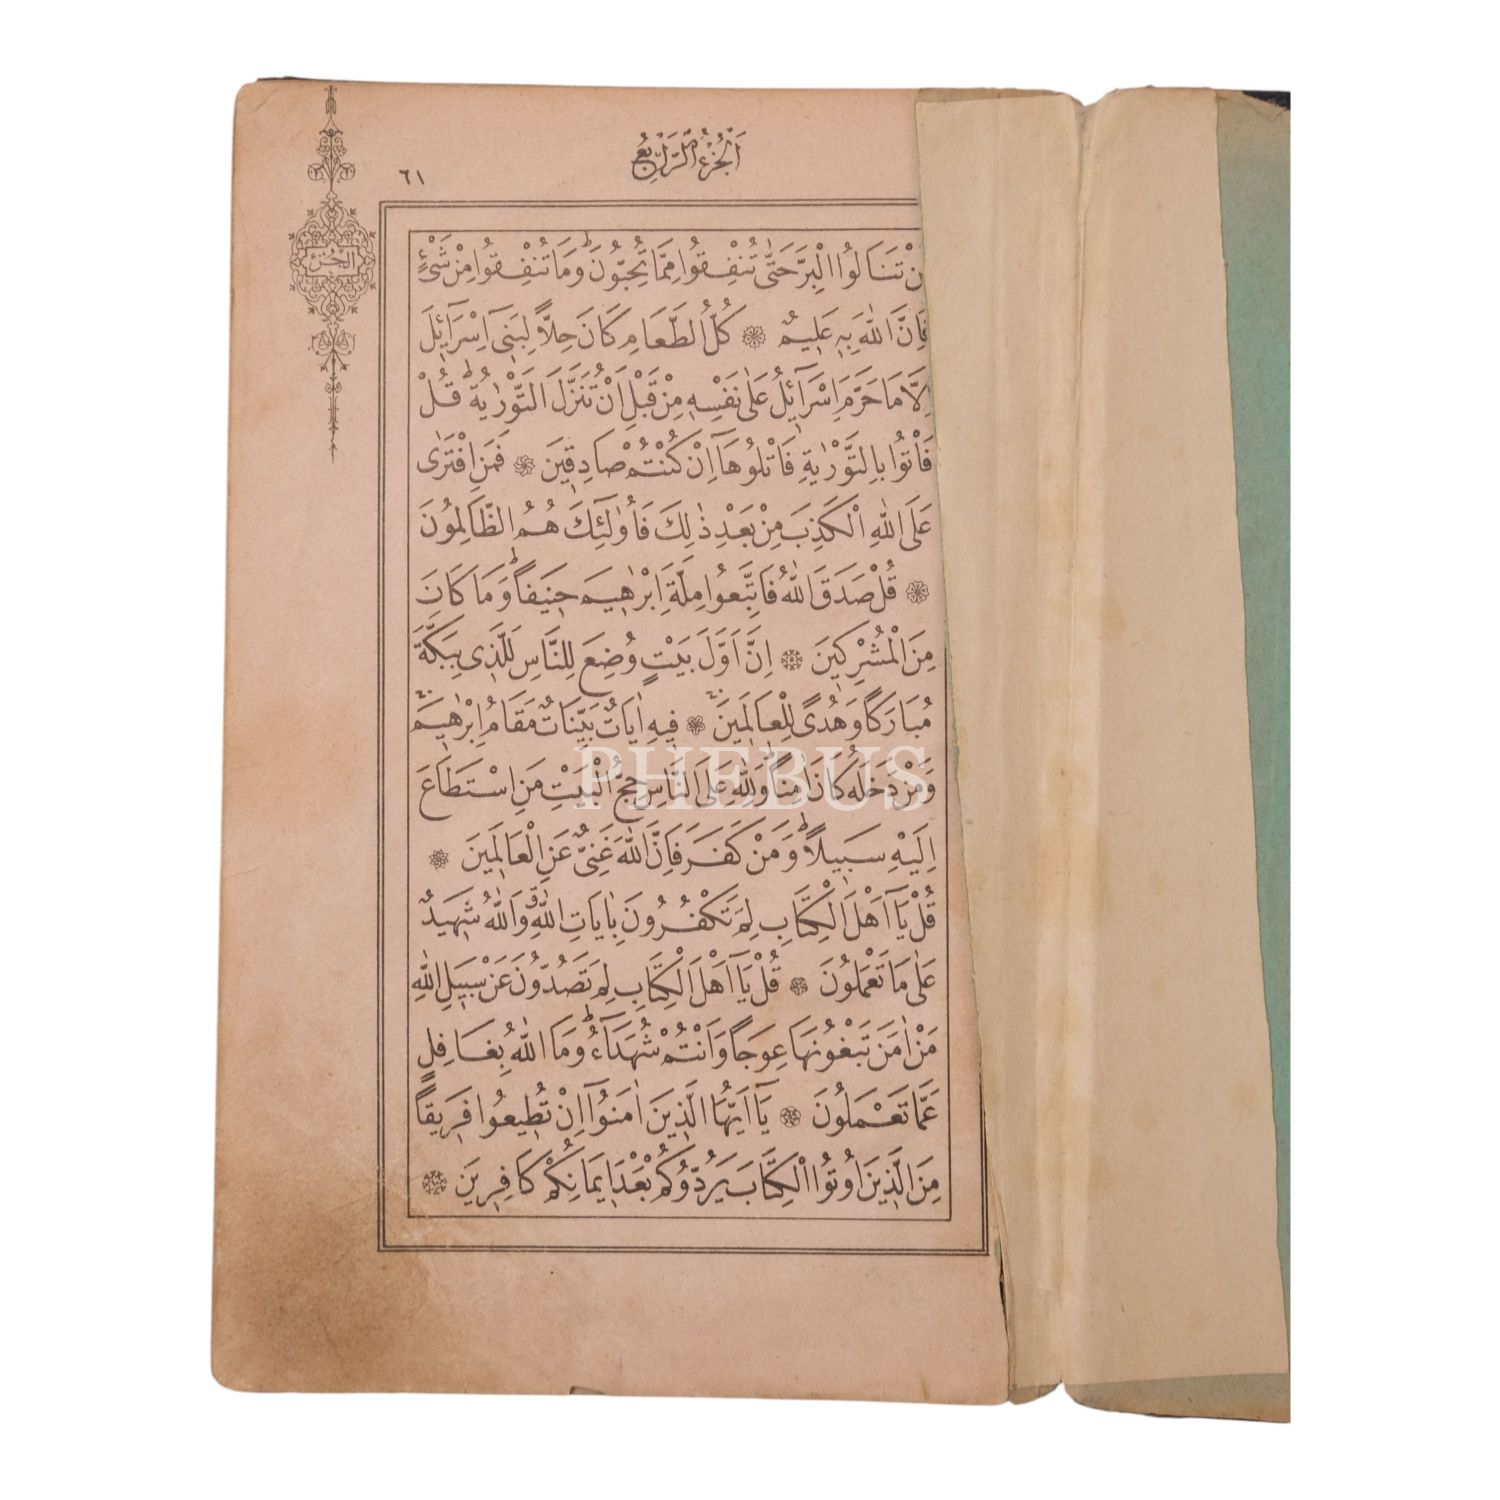 اَلْجُزْءُ الرَّابِعُ
٦١
الحزب
لَنْ تَنَالُوا الْبِرَّ حَتّٰى تُنْفِقُوا مِمَّا تُحِبُّونَۜ وَمَا تُنْفِقُوا مِنْ شَيْءٍ
فَاِنَّ اللّٰهَ بِهٖ عَلٖيمٌ ۞ كُلُّ الطَّعَامِ كَانَ حِلًّا لِبَنٖٓي اِسْرَآئٖلَ
اِلَّا مَا حَرَّمَ اِسْرَآئٖلُ عَلٰى نَفْسِهٖ مِنْ قَبْلِ اَنْ تُنَزَّلَ التَّوْرٰيةُۜ قُلْ
فَاْتُوا بِالتَّوْرٰيةِ فَاتْلُوهَآ اِنْ كُنْتُمْ صَادِقٖينَ ۞ فَمَنِ افْتَرٰى
عَلَى اللّٰهِ الْكَذِبَ مِنْ بَعْدِ ذٰلِكَ فَاُو۬لٰٓئِكَ هُمُ الظَّالِمُونَ
۞ قُلْ صَدَقَ اللّٰهُ فَاتَّبِعُوا مِلَّةَ اِبْرٰهٖيمَ حَنٖيفًاۜ وَمَا كَانَ
مِنَ الْمُشْرِكٖينَ ۞ اِنَّ اَوَّلَ بَيْتٍ وُضِعَ لِلنَّاسِ لَلَّذٖي بِبَكَّةَ
مُبَارَكًا وَهُدًى لِلْعَالَمٖينَۚ ۞ فٖيهِ اٰيَاتٌ بَيِّنَاتٌ مَقَامُ اِبْرٰهٖيمَۚ
وَمَنْ دَخَلَهُ كَانَ اٰمِنًاۜ وَلِلّٰهِ عَلَى النَّاسِ حِجُّ الْبَيْتِ مَنِ اسْتَطَاعَ
اِلَيْهِ سَبٖيلًاۜ وَمَنْ كَفَرَ فَاِنَّ اللّٰهَ غَنِيٌّ عَنِ الْعَالَمٖينَ ۞
قُلْ يَآ اَهْلَ الْكِتَابِ لِمَ تَكْفُرُونَ بِاٰيَاتِ اللّٰهِۗ وَاللّٰهُ شَهٖيدٌ
عَلٰى مَا تَعْمَلُونَ ۞ قُلْ يَآ اَهْلَ الْكِتَابِ لِمَ تَصُدُّونَ عَنْ سَبٖيلِ اللّٰهِ
مَنْ اٰمَنَ تَبْغُونَهَا عِوَجًا وَاَنْتُمْ شُهَدَآءُۜ وَمَا اللّٰهُ بِغَافِلٍ
عَمَّا تَعْمَلُونَ ۞ يَآ اَيُّهَا الَّذٖينَ اٰمَنُوٓا اِنْ تُطٖيعُوا فَرٖيقًا
مِنَ الَّذٖينَ اُوتُوا الْكِتَابَ يَرُدُّوكُمْ بَعْدَ اٖيمَانِكُمْ كَافِرٖينَ ۞
PHEBUS